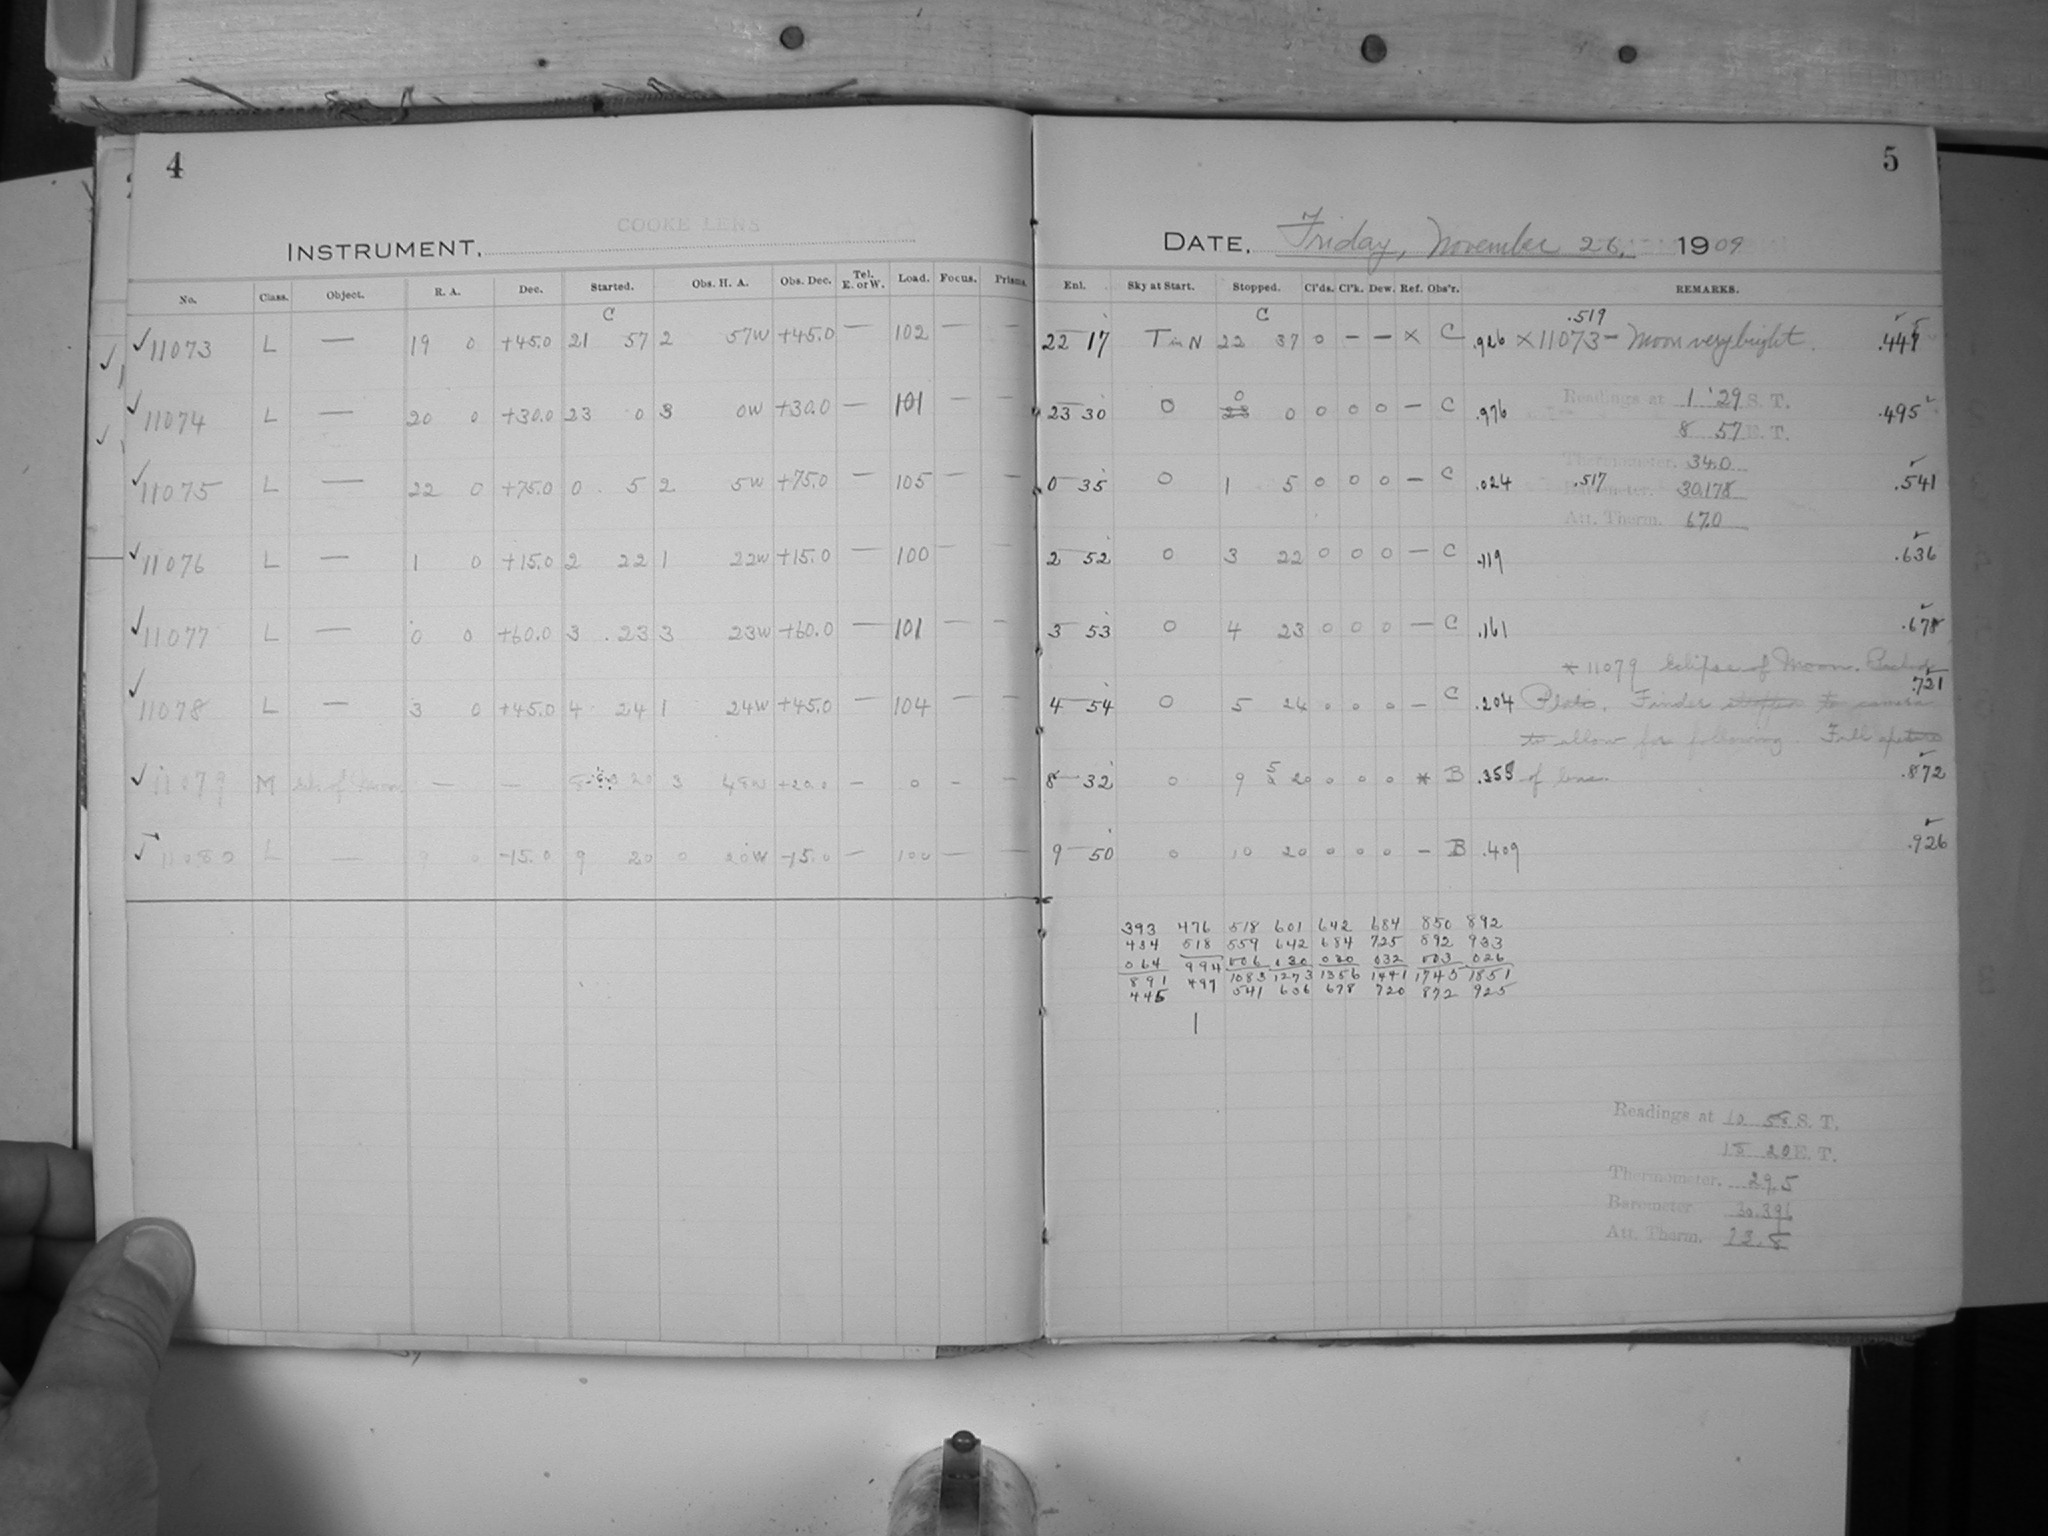 4
5
COOKE LENS
INSTRUMENT,
DATE, Friday, November 26, 1909
No. Class. Object. R. A. Dec. Started. Obs. H. A. Obs. Dec. Tel. E. or W. Load. Focus. Prisms. Enl. Sky at Start. Stopped. Cl'ds. Cl'k. Dew. Ref. Obs'r. REMARKS.
C C .519
✓11073 L — 19 0 +45.0 21 57 2 57W +45.0 — 102 — — 22 17 T in N 22 37 0 — — × C .926 ×11073 – Moon very bright.
Readings at 1 29 S. T.
✓11074 L — 20 0 +30.0 23 0 3 0W +30.0 — 101 — — 23 30 0 0 0 0 0 0 — C .976 .495
8 57 E. T.
Thermometer. 34.0
✓11075 L — 22 0 +75.0 0 5 2 5W +75.0 — 105 — — 0 35 0 1 5 0 0 0 — C .024 .517 Barometer. 30.178 .541
Att. Therm. 67.0
✓11076 L — 1 0 +15.0 2 22 1 22W +15.0 — 100 — — 2 52 0 3 22 0 0 0 — C .119 .636
✓11077 L — 0 0 +60.0 3 23 3 23W +60.0 — 101 — — 3 53 0 4 23 0 0 0 — C .161 .678
* 11079 Eclipse of Moon. Backed
✓11078 L — 3 0 +45.0 4 24 1 24W +45.0 — 104 — — 4 54 0 5 24 0 0 0 — C .204 Plate. Finder to camera .721
to allow for following. Full aperture
✓11079 M Ecl. of Moon — — 8 20 3 48W +20.0 — 0 — — 8 32 0 9 20 0 0 0 * B .358 of lens. .872
✓11080 L — 9 0 -15.0 9 20 0 20W -15.0 — 100 — — 9 50 0 10 20 0 0 0 — B .409 .926
393 476 518 601 642 684 850 892
434 518 559 642 684 725 892 933
064 994 006 030 030 032 003 026
891 497 1083 1273 1356 1441 1745 1851
445 541 636 678 720 872 925
Readings at 10 58 S. T.
18 20 E. T.
Thermometer. 29.5
Barometer. 30.396
Att. Therm.